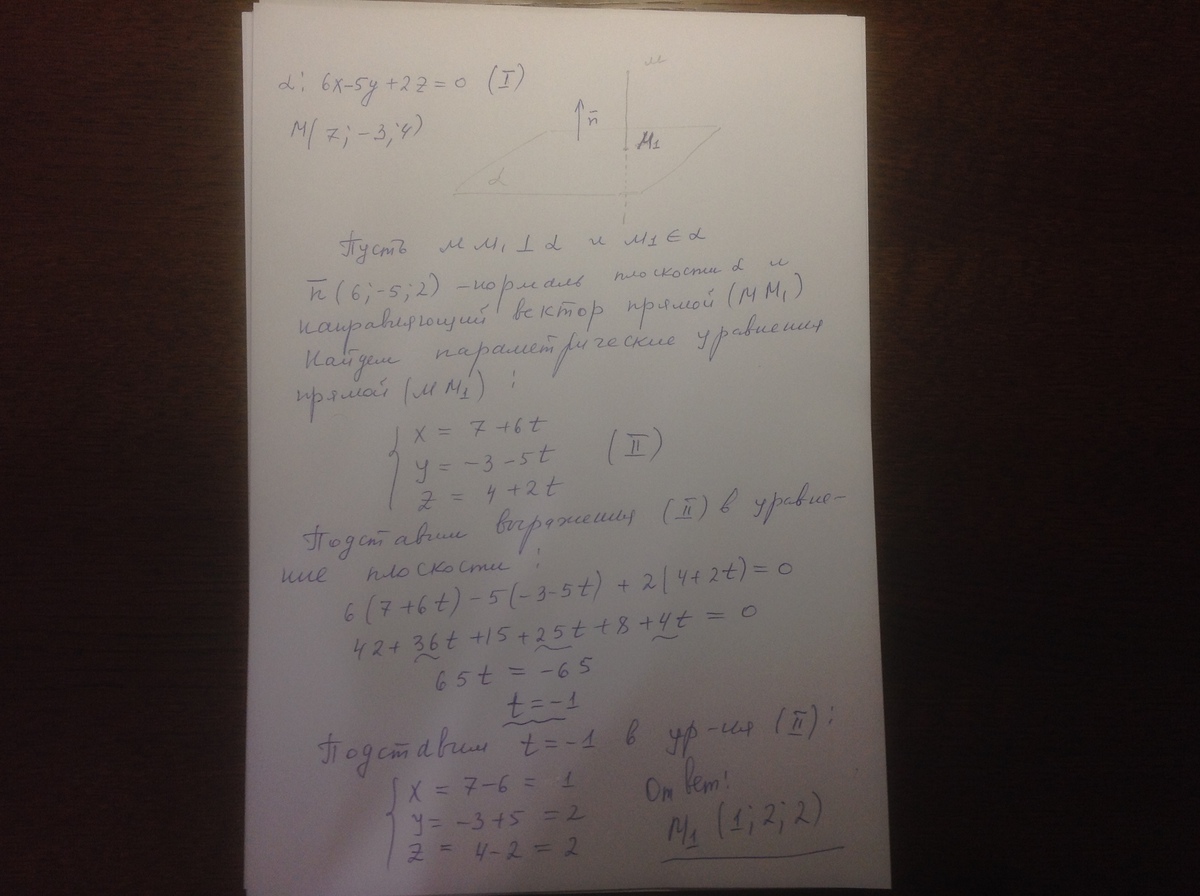 α: 6x-5y+2z=0 (I)
M
M(7;-3;4)
n̅
M₁
α
Пусть MM₁ ⊥ α и M₁ ∈ α
n̅(6;-5;2) - нормаль плоскости α и
направляющий вектор прямой (MM₁)
Найдем параметрические уравнения
прямой (MM₁):
{ x = 7+6t
y = -3-5t (II)
z = 4+2t
Подставим выражения (II) в уравне-
ние плоскости:
6(7+6t)-5(-3-5t)+2(4+2t)=0
42+36t+15+25t+8+4t=0
65t = -65
t=-1
Подставим t=-1 в ур-ия (II):
{ x = 7-6 = 1
Ответ:
y = -3+5 = 2
M₁ (1;2;2)
z = 4-2 = 2